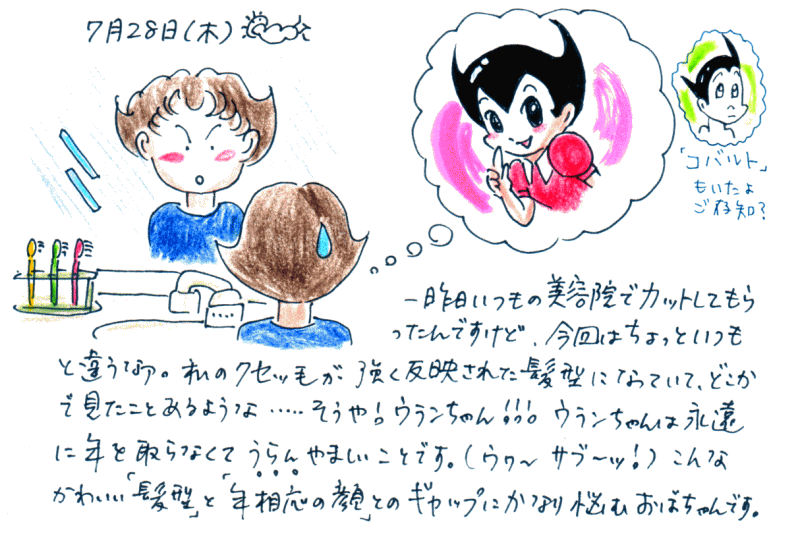 7月28日(木)
「コバルト」
もいたよ
ご存知?
一昨日いつもの美容院でカットしてもら
ったんですけど、今回はちょっといつも
と違うなァ。私のクセッ毛が強く反映された髪型になっていて、どこか
で見たことあるような……そうや!ウランちゃん!!!ウランちゃんは永遠
に年を取らなくてうらんやましいことです。(ウゥ〜サブ〜ッ!)こんな
かわいい「髪型」と「年相応の顔」とのギャップにかなり悩むおばちゃんです。